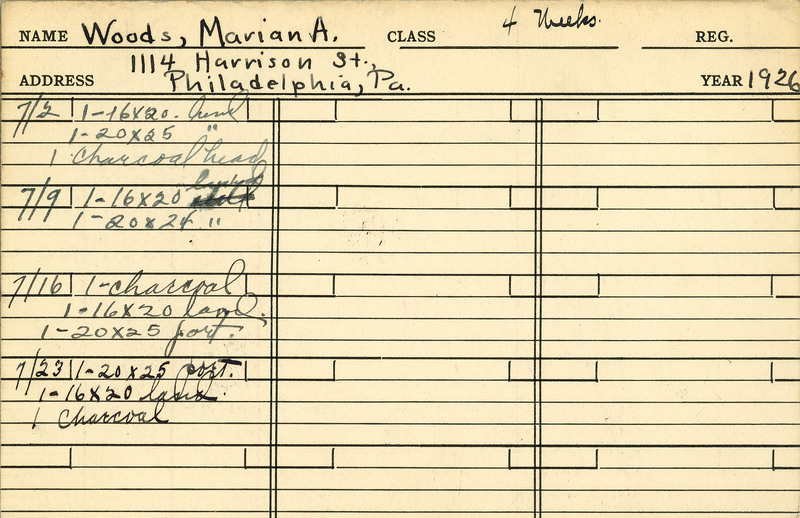 4 Weeks.
NAME Woods, Marian A. CLASS REG.
1114 Harrison St.,
ADDRESS Philadelphia, Pa. YEAR 1926
7/2 1-16x20. land
1-20x25 "
1 Charcoal head
land
7/9 1-16x20
1-20x24 "
7/16 1-charcoal
1-16x20 land.
1-20x25 port.
7/23 1-20x25 port.
1-16x20 land.
1 Charcoal